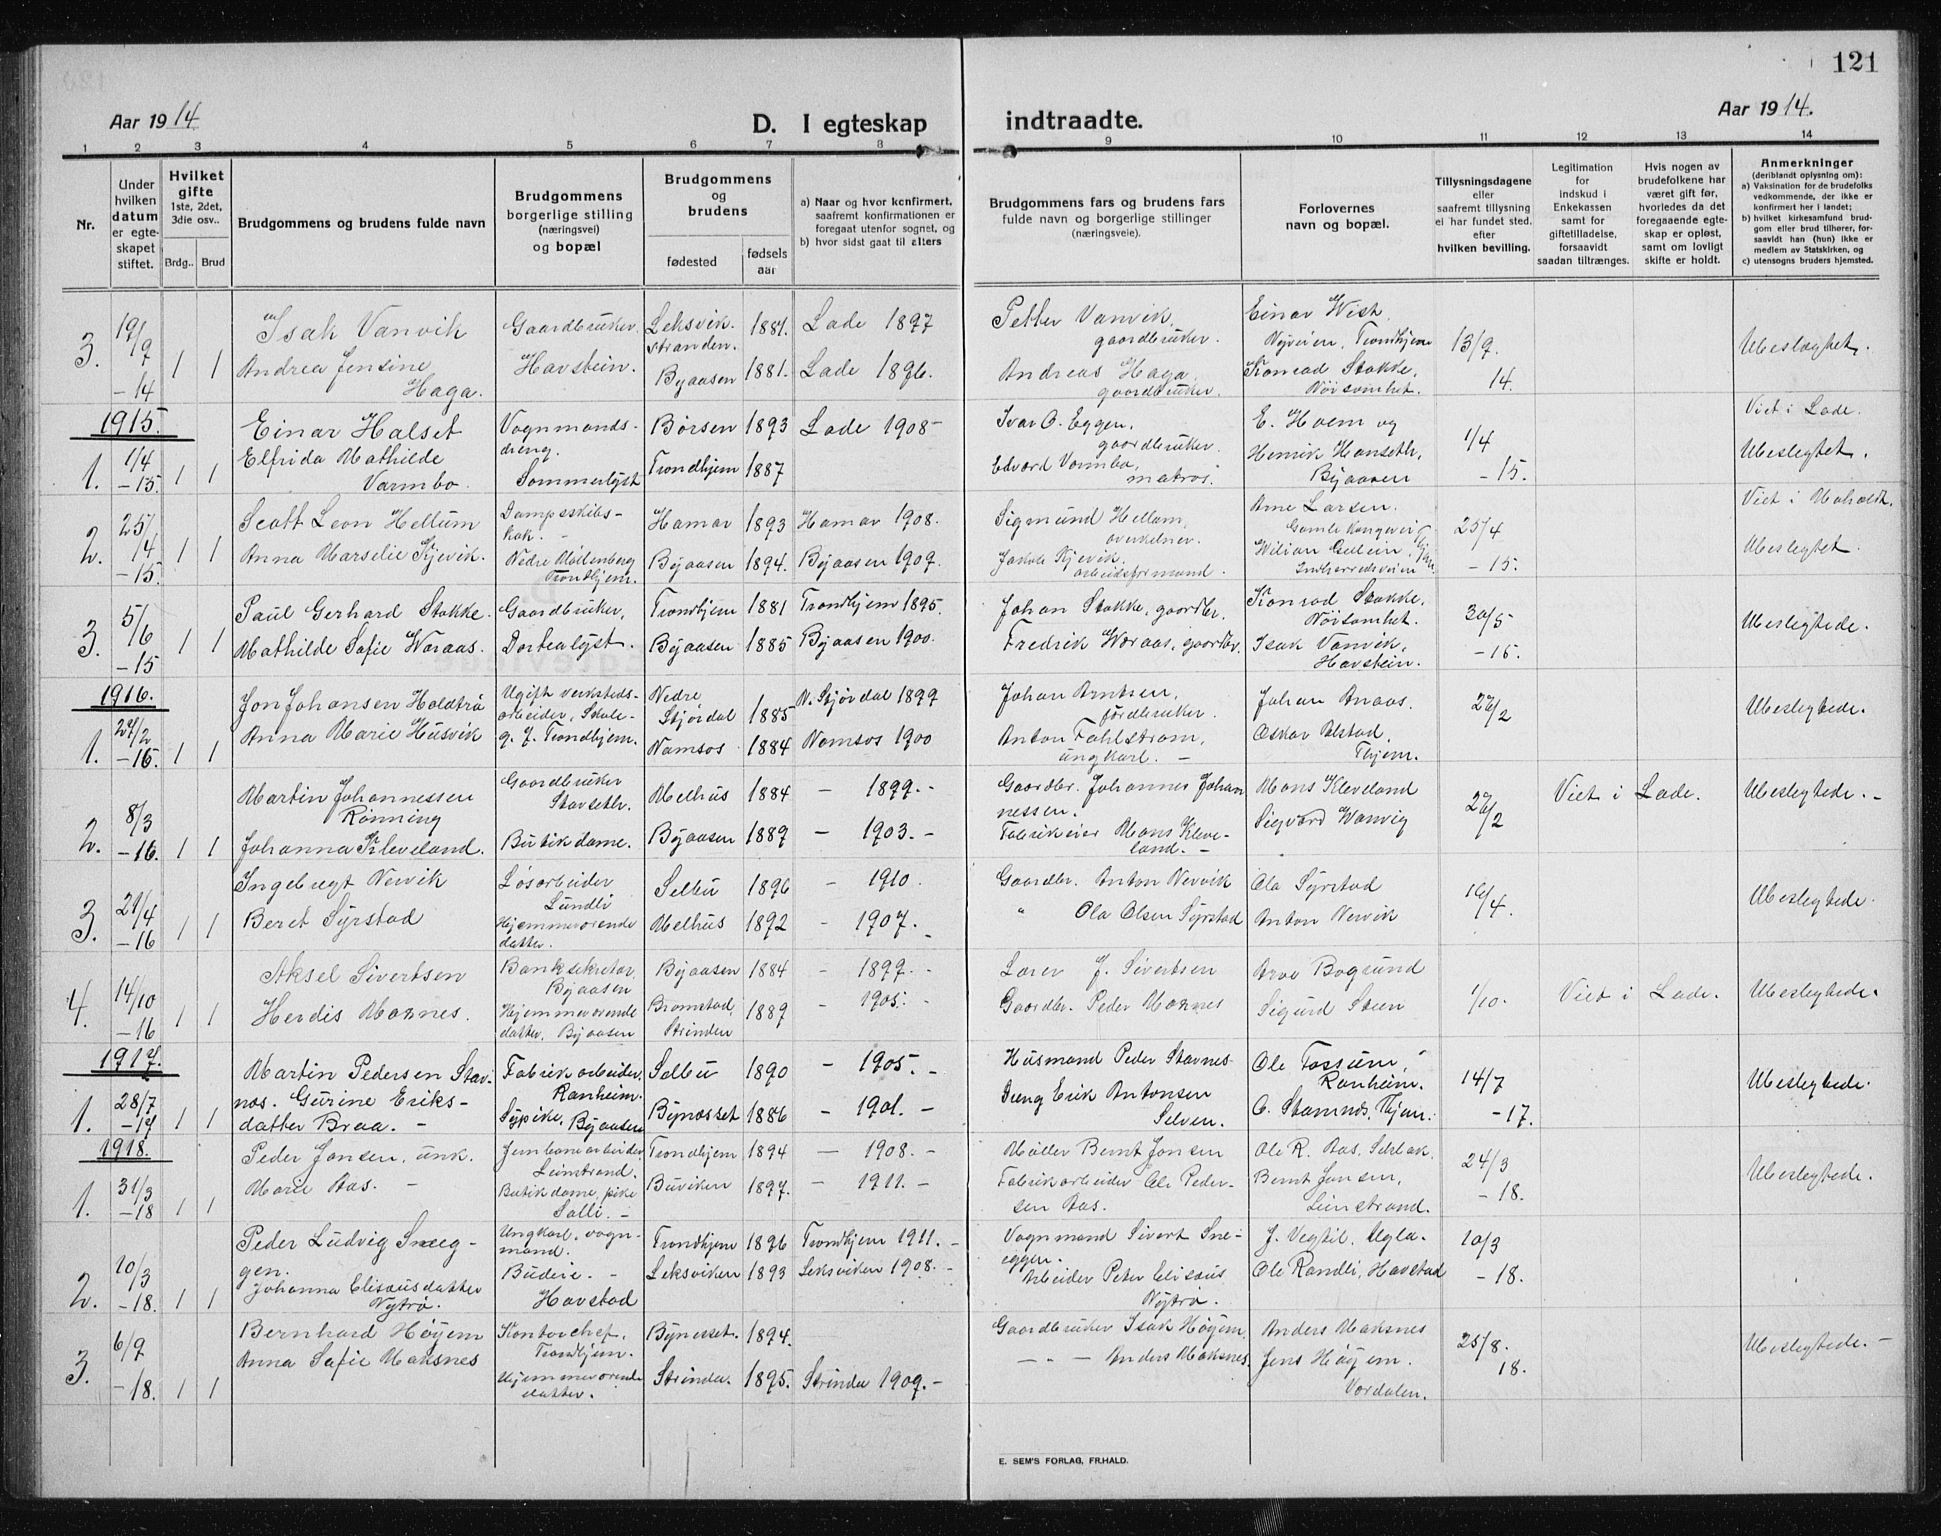 121
Aar 1914
D. I egteskap indtraadte.
Aar 1914.
1 2 3 4 5 6 7 8 9 10 11 12 13 14
Nr.
Under hvilken datum er egteskapet stiftet.
Hvilket gifte 1ste, 2det, 3die osv..
Brdg.. Brud
Brudgommens og brudens fulde navn
Brudgommens borgerlige stilling (næringsvei) og bopæl
Brudgommens og brudens
fødested
fødsels aar
a) Naar og hvor konfirmert, saafremt konfirmationen er foregaat utenfor sognet, og
b) hvor sidst gaat til alters
Brudgommens fars og brudens fars fulde navn og borgerlige stillinger (næringsveie).
Forlovernes navn og bopæl.
Tillysningsdagene eller saafremt tillysning ei har fundet sted. efter hvilken bevilling.
Legitimation for indskud i Enkekassen samt for giftetilladelse, forsaavidt saadan tiltrænges.
Hvis nogen av brudefolkene har været gift før, hvorledes da det foregaaende egteskap er opløst, samt om lovligt skifte er holdt.
Anmerkninger (deriblandt oplysning om):
a) Vaksination for de brudefolks vedkommende, der ikke er konfirmert her i landet;
b) hvilket kirkesamfund brudgom eller brud tilhører, forsaavidt han (hun) ikke er medlem av Statskirken, og
c) utensogns bruders hjemsted.
3. 19/9 -14 1 1
Isak Vanvik Gaardbruker. Leksvik-stranden. 1881. Lade 1897
Andrea Jensine Haga. Havstein. Byaasen 1881. Lade 1896.
Petter Vanvik, gaardbruker. Einar Wist, Trondhjem
Andreas Haga gaardbruker. Konrad Stokke, Nøisomhet.
13/9. 14. Ubeslægtet.
1915.
1. 1/4 -15 1 1
Einar Halset Vognmandsdreng. Børsen 1893 Lade 1908
Elfrida Mathilde Varmbo. Sommerlyst Trondhjem 1887
Ivar O. Eggen, gaardbruker. E. Hoem og
Edvard Varmbo, matros. Henrik Hanseth, Byaasen
1/4 -15. Viet i Lade. Ubeslegtet.
2. 25/4 -15. 1 1
Scott Leon Hellum Dampskibskok. Hamar 1893 Hamar 1908.
Anna Marselie Kjevik. Nedre Møllenberg Trondhjem. Byaasen 1894. Byaasen 1909.
Sigmund Hellum, overkelner. Arne Larsen. Gamle Kongevei
Jakob Kjevik arbeidsformand. Indherredsveien
25/4 -15. Viet i Ubeslegtet.
3. 5/6 -15 1 1
Paul Gerhard Stokke. Gaardbruker, Trondhjem 1881 Trondhjem 1895.
Mathilde Sofie Woraas. Dortealyst. Byaasen 1885 Byaasen 1900.
Johan Stokke, gaardbr. Konrad Stokke, Nøisomhet.
Fredrik Woraas, gaardbr. Isak Vanvik, Havstein.
30/5 -15. Ubeslegtede.
1916.
1. 27/2 -16. 1 1
Jon Johansen Holdtrø Ugift verkstedsarbeider, Skoleg. 7. Trondhjem. Nedre Stjørdal 1885 N. Stjørdal 1899
Anna Marie Husvik Namsos 1884 Namsos 1900
Johan Arntsen, jordbruker. Johan Anaas.
Anton Fahlstrøm, ungkarl. Oskar Olstad, Thjem.
27/2 Ubeslegtede.
2. 8/3 -16. 1 1
Martin Johannessen Rønning Gaardbruker Stavseth. Melhus 1884 - 1899.
Johanna Kleveland. Butikdame. Byaasen 1889 - 1903.
Gaardbr. Johannes Johannessen. Mons Kleveland
Fabrikeier Mons Kleveland. Sigvard Wanvig
27/2 Viet i Lade. Ubeslegtede.
3. 29/4 -16 1 1
Ingebrigt Nervik Løsarbeider Lundli Selbu 1896 - 1910.
Beret Syrstad Hjemmeværende datter. Melhus 1892 - 1907.
Gaardbr. Anton Nervik Ola Syrstad
" Ola Olsen Syrstad Anton Nervik
16/4. Ubeslegtede.
4. 14/10 -16 1 1
Aksel Sivertsen Banksekretær, Byaasen Byaasen 1884 - 1899.
Herdis Moxnes. Hjemmeværende datter, Byaasen Bromstad, Strinden 1889 - 1905.
Lærer J. Sivertsen Arve Bogsund
Gaardbr. Peder Moxnes Sigurd Steen
1/10. Viet i Lade. Ubeslegtede.
1917.
1. 28/7 -17 1 1
Martin Pedersen Stavnes. Fabrikarbeider, Ranheim. Selbu 1890 - 1905.
Gurine Eriksdatter Braa. Sypike, Byaasen Bynesset 1886 - 1901.
Husmand Peder Stavnes Ole Fossum, Ranheim.
Dreng Erik Antonsen Selven. O. Stamnes, Thjem.
14/7 -17. Ubeslegtede.
1918.
1. 31/3 -18 1 1
Peder Jonsen, unk. Jernbanearbeider Leinstrand. Trondhjem 1894 - 1908.
Marie Aas. Butikdame, pike Salli. Buviken 1897. - 1911.
Møller Bernt Jonsen Ole R. Aas,
Fabrikarbeider Ole Pedersen Aas. Bernt Jonsen, Leinstrand.
24/3 -18. Ubeslegtede.
2. 10/3 -18. 1 1
Peder Ludvig Sneeggen. Ungkarl, vognmand. Trondhjem 1896 Trondhjem 1911.
Johanna Eliseusdatter Nytrø. Budeie. Havstad Leksviken 1893 Leksviken 1908.
Vognmand Sivert Sneeggen. J. Vegtil. Ugla
Arbeider Peter Eliseus Nytrø. Ole Randli, Havstad
10/3 -18.
3. 6/9 -18. 1 1
Bernhard Høyem Kontorchef, Trondhjem. Bynesset. 1894.
Anna Sofie Moksnes Hjemmeværende datter. Strinda. 1895. Strinda 1909.
Gaardbruker Isak Høyem, Anders Moksnes
- " - Anders Moksnes. Jens Høyem. Verdalen.
25/8. 18. Ubeslegtede.
E. SEM'S FORLAG, FR.HALD.